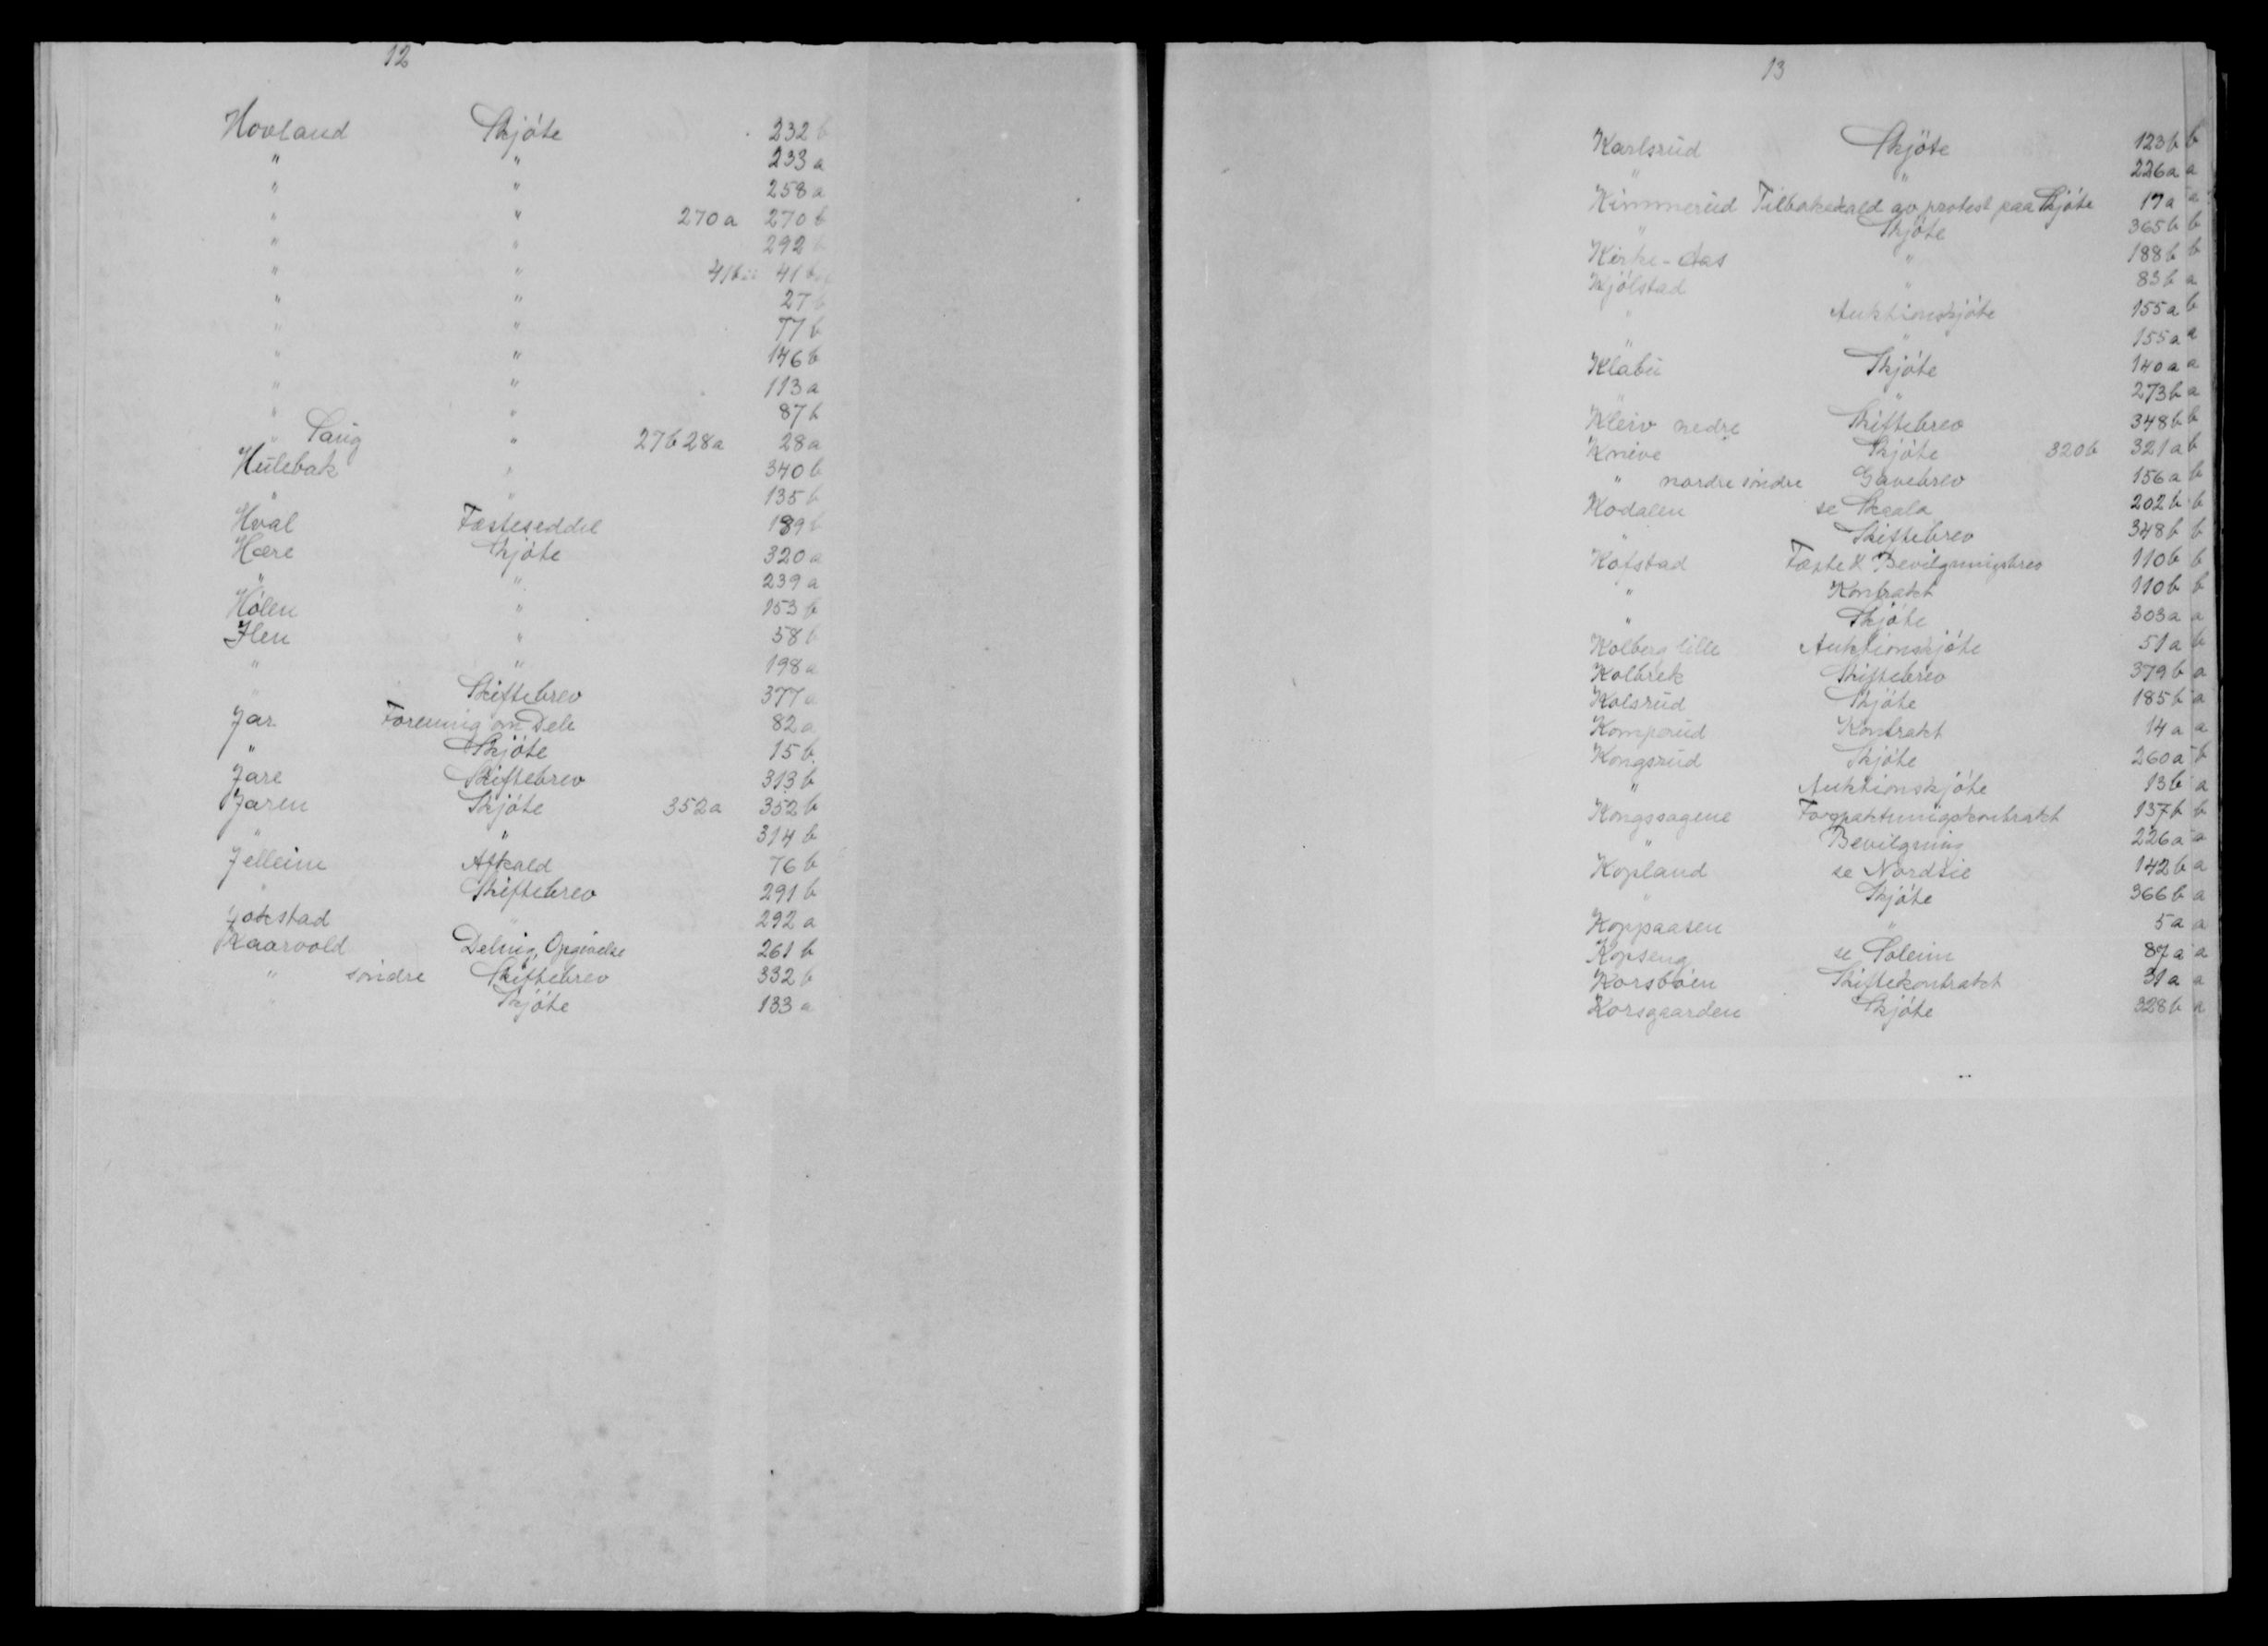 12
Hovland Skjöte 232 b
" " 233 a
" " 258 a
" " 270 a 270 b
" " 292 b
" " 41 b 41 b
" " 27 b
" " 77 b
" " 146 b
" " 113 a
" " 87 b
" Sarig " 27 b 28 a 28 a
Hulebak " 340 b
" " 135 b
Hval Fæsteseddel 189 b
Hære Skjöte 320 a
" " 239 a
Hölen " 153 b
Ilen " 58 b
" " 198 a
" Skiftebrev 377 a
Jar Forening om Dele 82 a
" Skjöte 15 b
Jare Skiftebrev 313 b
Jaren Skjöte 352 a 352 b
" " 314 b
Jelleim Afkald 76 b
" Skiftebrev 291 b
Jokstad " 292 a
Kaarvold Delnig, Opgivelse 261 b
" söndre Skiftebrev 332 b
" Skjöte 133 a
13
Karlsrud Skjöte 123 b b
" " 226 a a
Kimmerud Tilbakekald av protest paa Skjöte 17 a a
" Skjöte 365 b b
Kirke-Aas " 188 b b
Kjölstad " 83 b a
" Auktionskjöte 155 a b
" " 155 a a
Klabu Skjöte 140 a a
" " 273 b a
Kleiv nedre Skiftebrev 348 b b
Knive Skjöte 320 b 321 a b
" nordre söndre Gavebrev 156 a b
Kodalen se Skaala 202 b b
" Skiftebrev 348 b b
Kofstad Fæste & Bevilgningsbrev 110 b b
" Kontrakt 110 b b
" Skjöte 303 a a
Kolberg lille Auktionskjöte 51 a b
Kolbrek Skiftebrev 379 b a
Kolsrud Skjöte 185 b a
Komperud Kontrakt 14 a a
Kongsrud Skjöte 260 a b
" Auktionskjöte 13 b a
Kongssagene Forpaktningskontrakt 137 b b
" Bevilgning 226 a a
Kopland se Nordsie 142 b a
" Skjöte 366 b a
Koppaasen " 5 a a
Kopseng se Soleim 87 a a
Korsböen Skiftekontrakt 31 a a
Korsgaarden Skjöte 328 b a